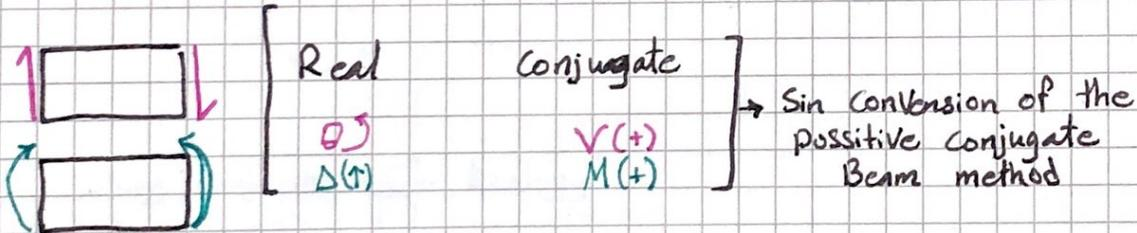 Real Conjugate
θ↺ V(+)
Δ(↑) M(+)
→ Sin Convension of the
possitive Conjugate
Beam method